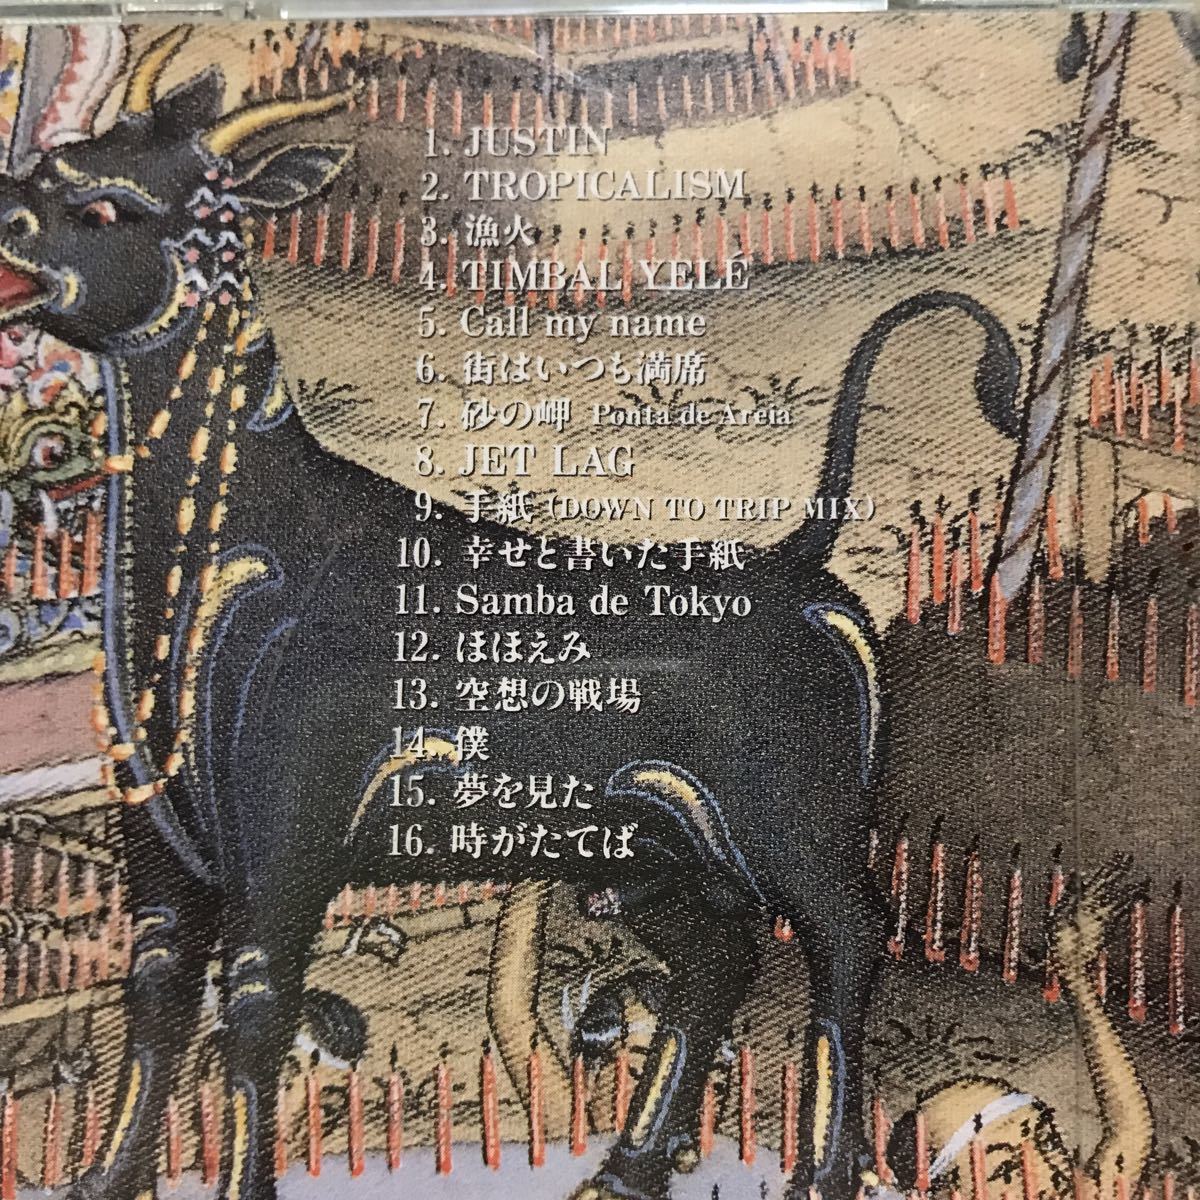 1. JUSTIN
2. TROPICALISM
3. 漁火
4. TIMBAL YELÉ
5. Call my name
6. 街はいつも満席
7. 砂の岬 Ponta de Areia
8. JET LAG
9. 手紙 (DOWN TO TRIP MIX)
10. 幸せと書いた手紙
11. Samba de Tokyo
12. ほほえみ
13. 空想の戦場
14. 僕
15. 夢を見た
16. 時がたてば